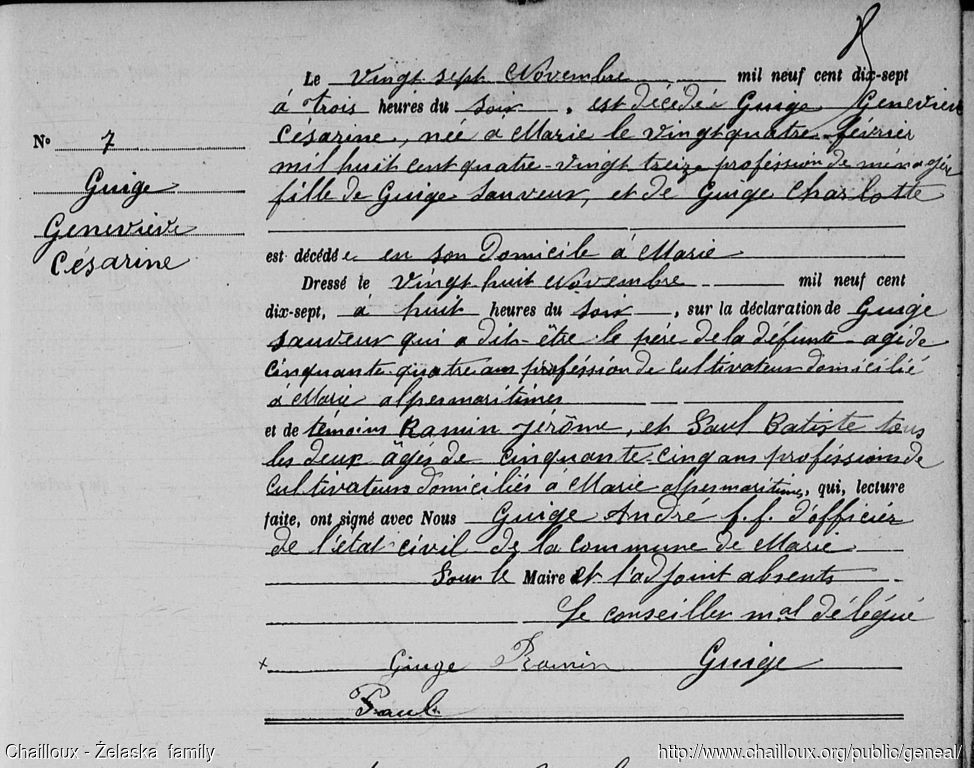 8
Le vingt sept Novembre mil neuf cent dix-sept
à trois heures du soir, est décédée Guige Geneviève
Césarine, née à Marie le vingt quatre février
mil huit cent quatre-vingt treize proféssion de ménagère
fille de Guige Sauveur, et de Guige Charlotte
est décédée en son domicile à Marie
Dressé le vingt huit Novembre mil neuf cent
dix-sept, à huit heures du soir, sur la déclaration de Guige
Sauveur qui a dit être le père de la défunte âgé de
cinquante-quatre ans proféssion de cultivateur domicilié
à Marie alpes maritimes
et de témoins Ramin Jérôme, et Paul Batiste tous
les deux âgés de cinquante-cinq ans proféssions de
cultivateurs domiciliés à Marie alpes maritimes, qui, lecture
faite, ont signé avec Nous Guige André f.f. d'officier
de l'état civil de la commune de Marie
Pour le Maire et l'adjoint absents
Le conseiller mal délégué
x Guige Ramin Guige
Paul
N° 7
Guige
Geneviève
Césarine
Chailloux - Želaska family
http://www.chailloux.org/public/geneal/